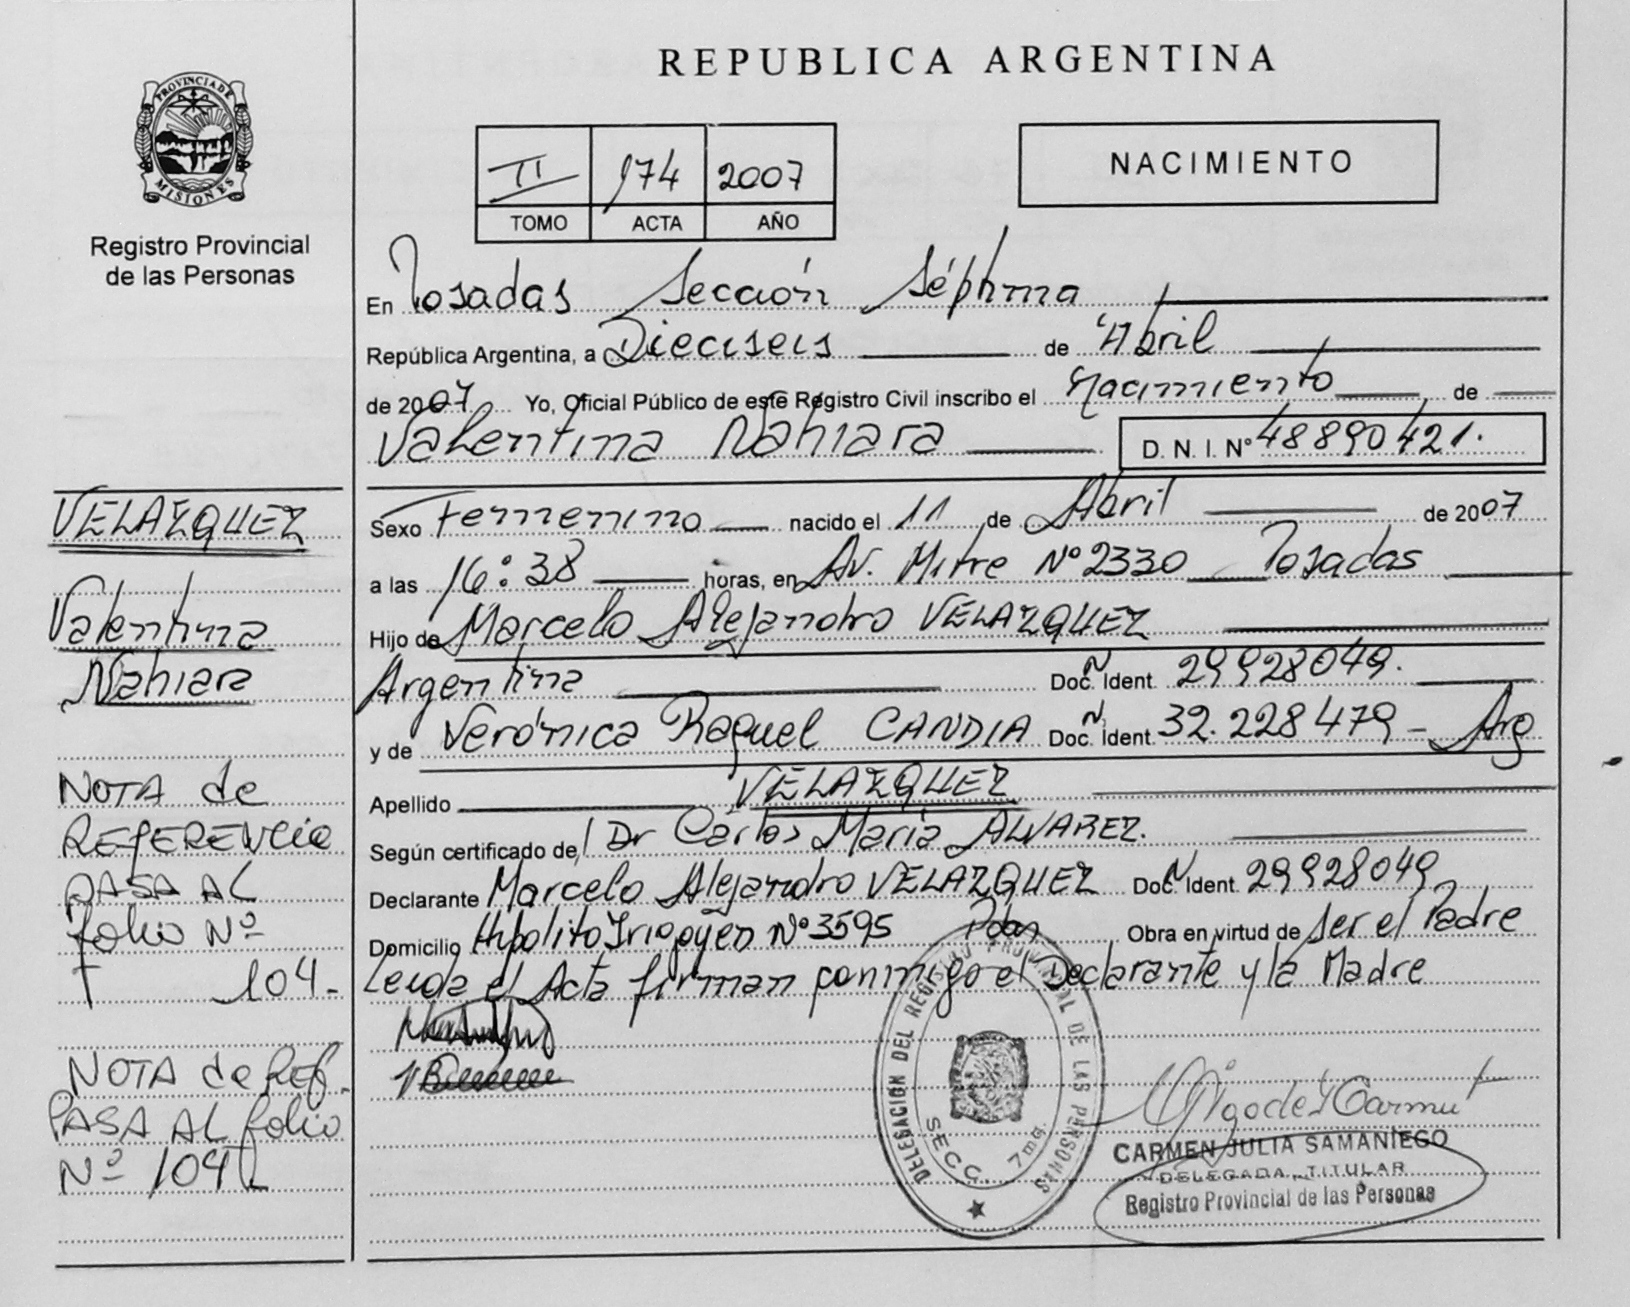 REPUBLICA ARGENTINA
PROVINCIA DE
MISIONES
Registro Provincial
de las Personas
II 174 2007
TOMO ACTA AÑO
NACIMIENTO
En Posadas Sección Séptima
República Argentina, a Dieciseis de Abril
de 2007 Yo, Oficial Público de este Registro Civil inscribo el Nacimiento de
Valentina Nahiara D. N. I. Nº 48890421.
VELAZQUEZ
Valentina
Nahiara
NOTA de
REFERENCIA
PASA AL
folio Nº
104-
NOTA de REF.
PASA AL folio
Nº 104
Sexo Femenino nacido el 11 de Abril de 2007
a las 16:38 horas, en Av. Mitre Nº 2330 Posadas
Hijo de Marcelo Alejandro VELAZQUEZ
Argentina Doc. Ident. 29928049.
y de Verónica Raquel CANDIA Doc. Ident. 32.228479 - Arg
Apellido VELAZQUEZ
Según certificado de Dr Carlos María ALVAREZ.
Declarante Marcelo Alejandro VELAZQUEZ Doc. Ident. 29928049
Domicilio Hipolito Irigoyen Nº 3595 Pdas Obra en virtud de Ser el Padre
Leida el Acta firman conmigo el Declarante y la Madre
DELEGACION DEL REGISTRO PROVINCIAL DE LAS PERSONAS
SECC. 7ma
CARMEN JULIA SAMANIEGO
DELEGADA TITULAR
Registro Provincial de las Personas